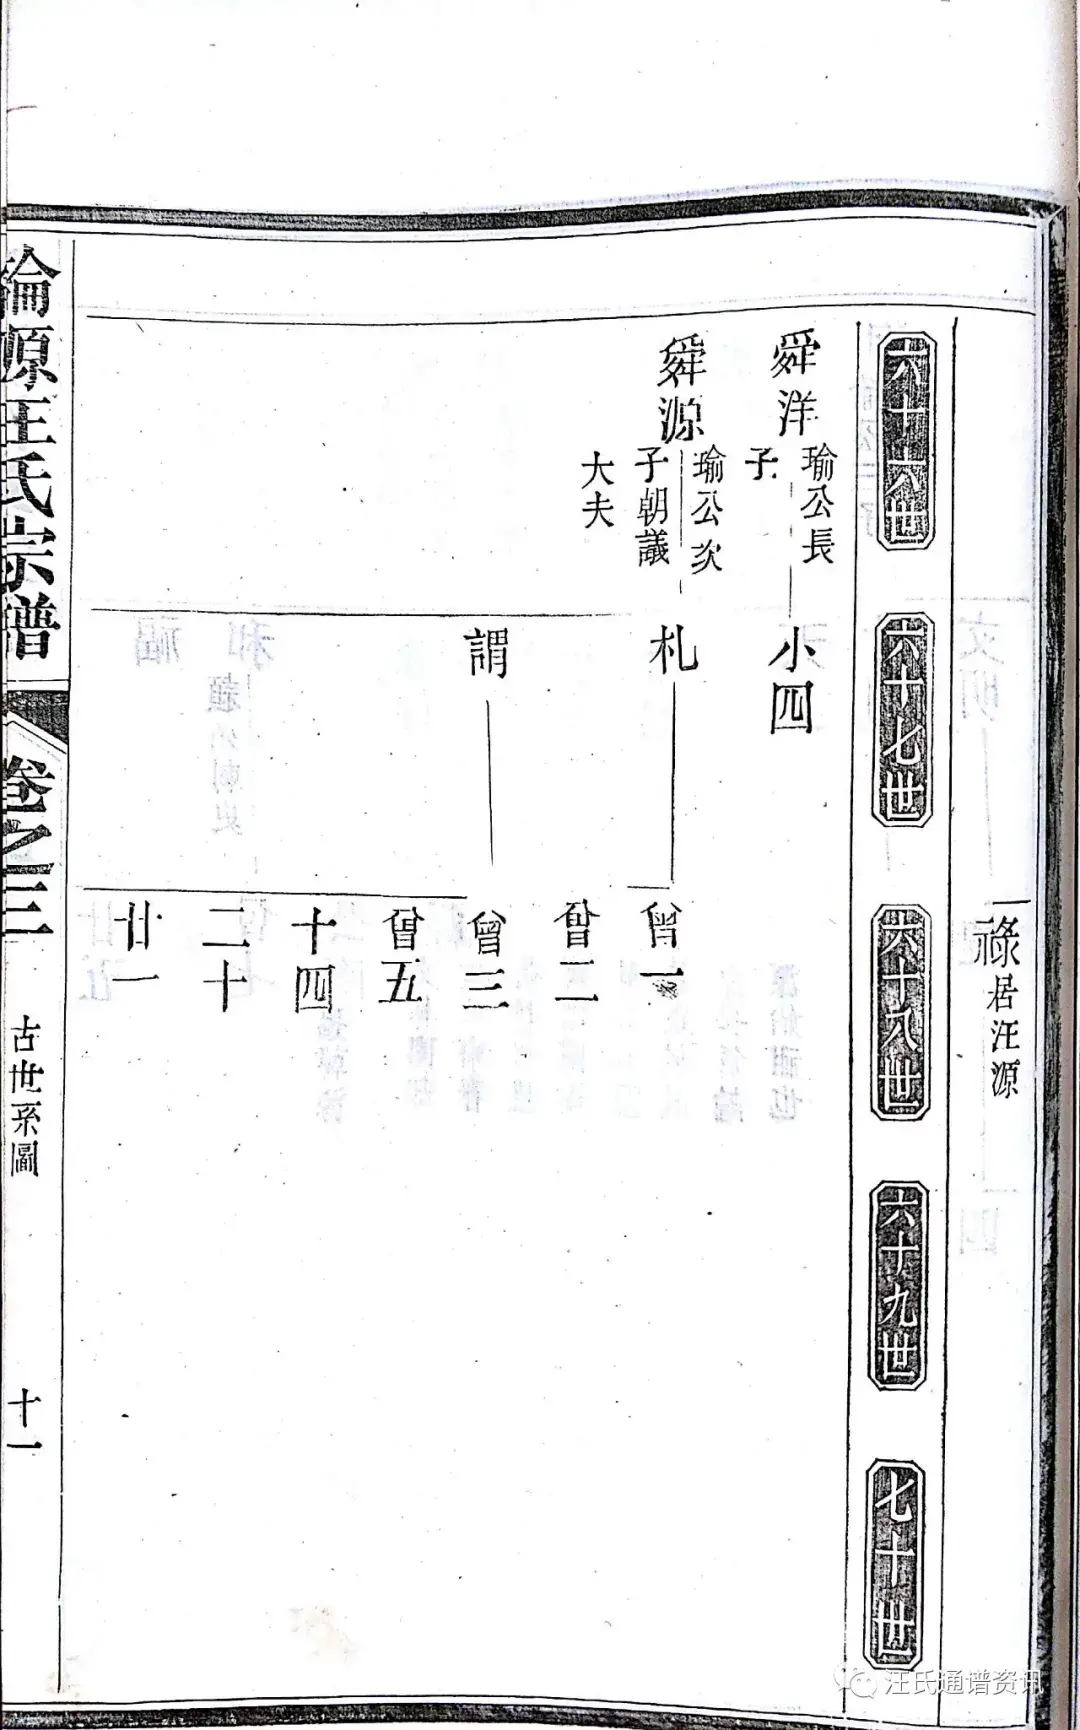 祿居汪源
六十六世
六十七世
六十八世
六十九世
七十世
舜洋
瑜公長
子
小四
舜源
瑜公次
子朝議
大夫
札
謂
曾一
曾二
曾三
曾五
十四
二十
廿一
源汪氏宗譜
卷之三
古世系圖
十一
汪氏通谱资讯